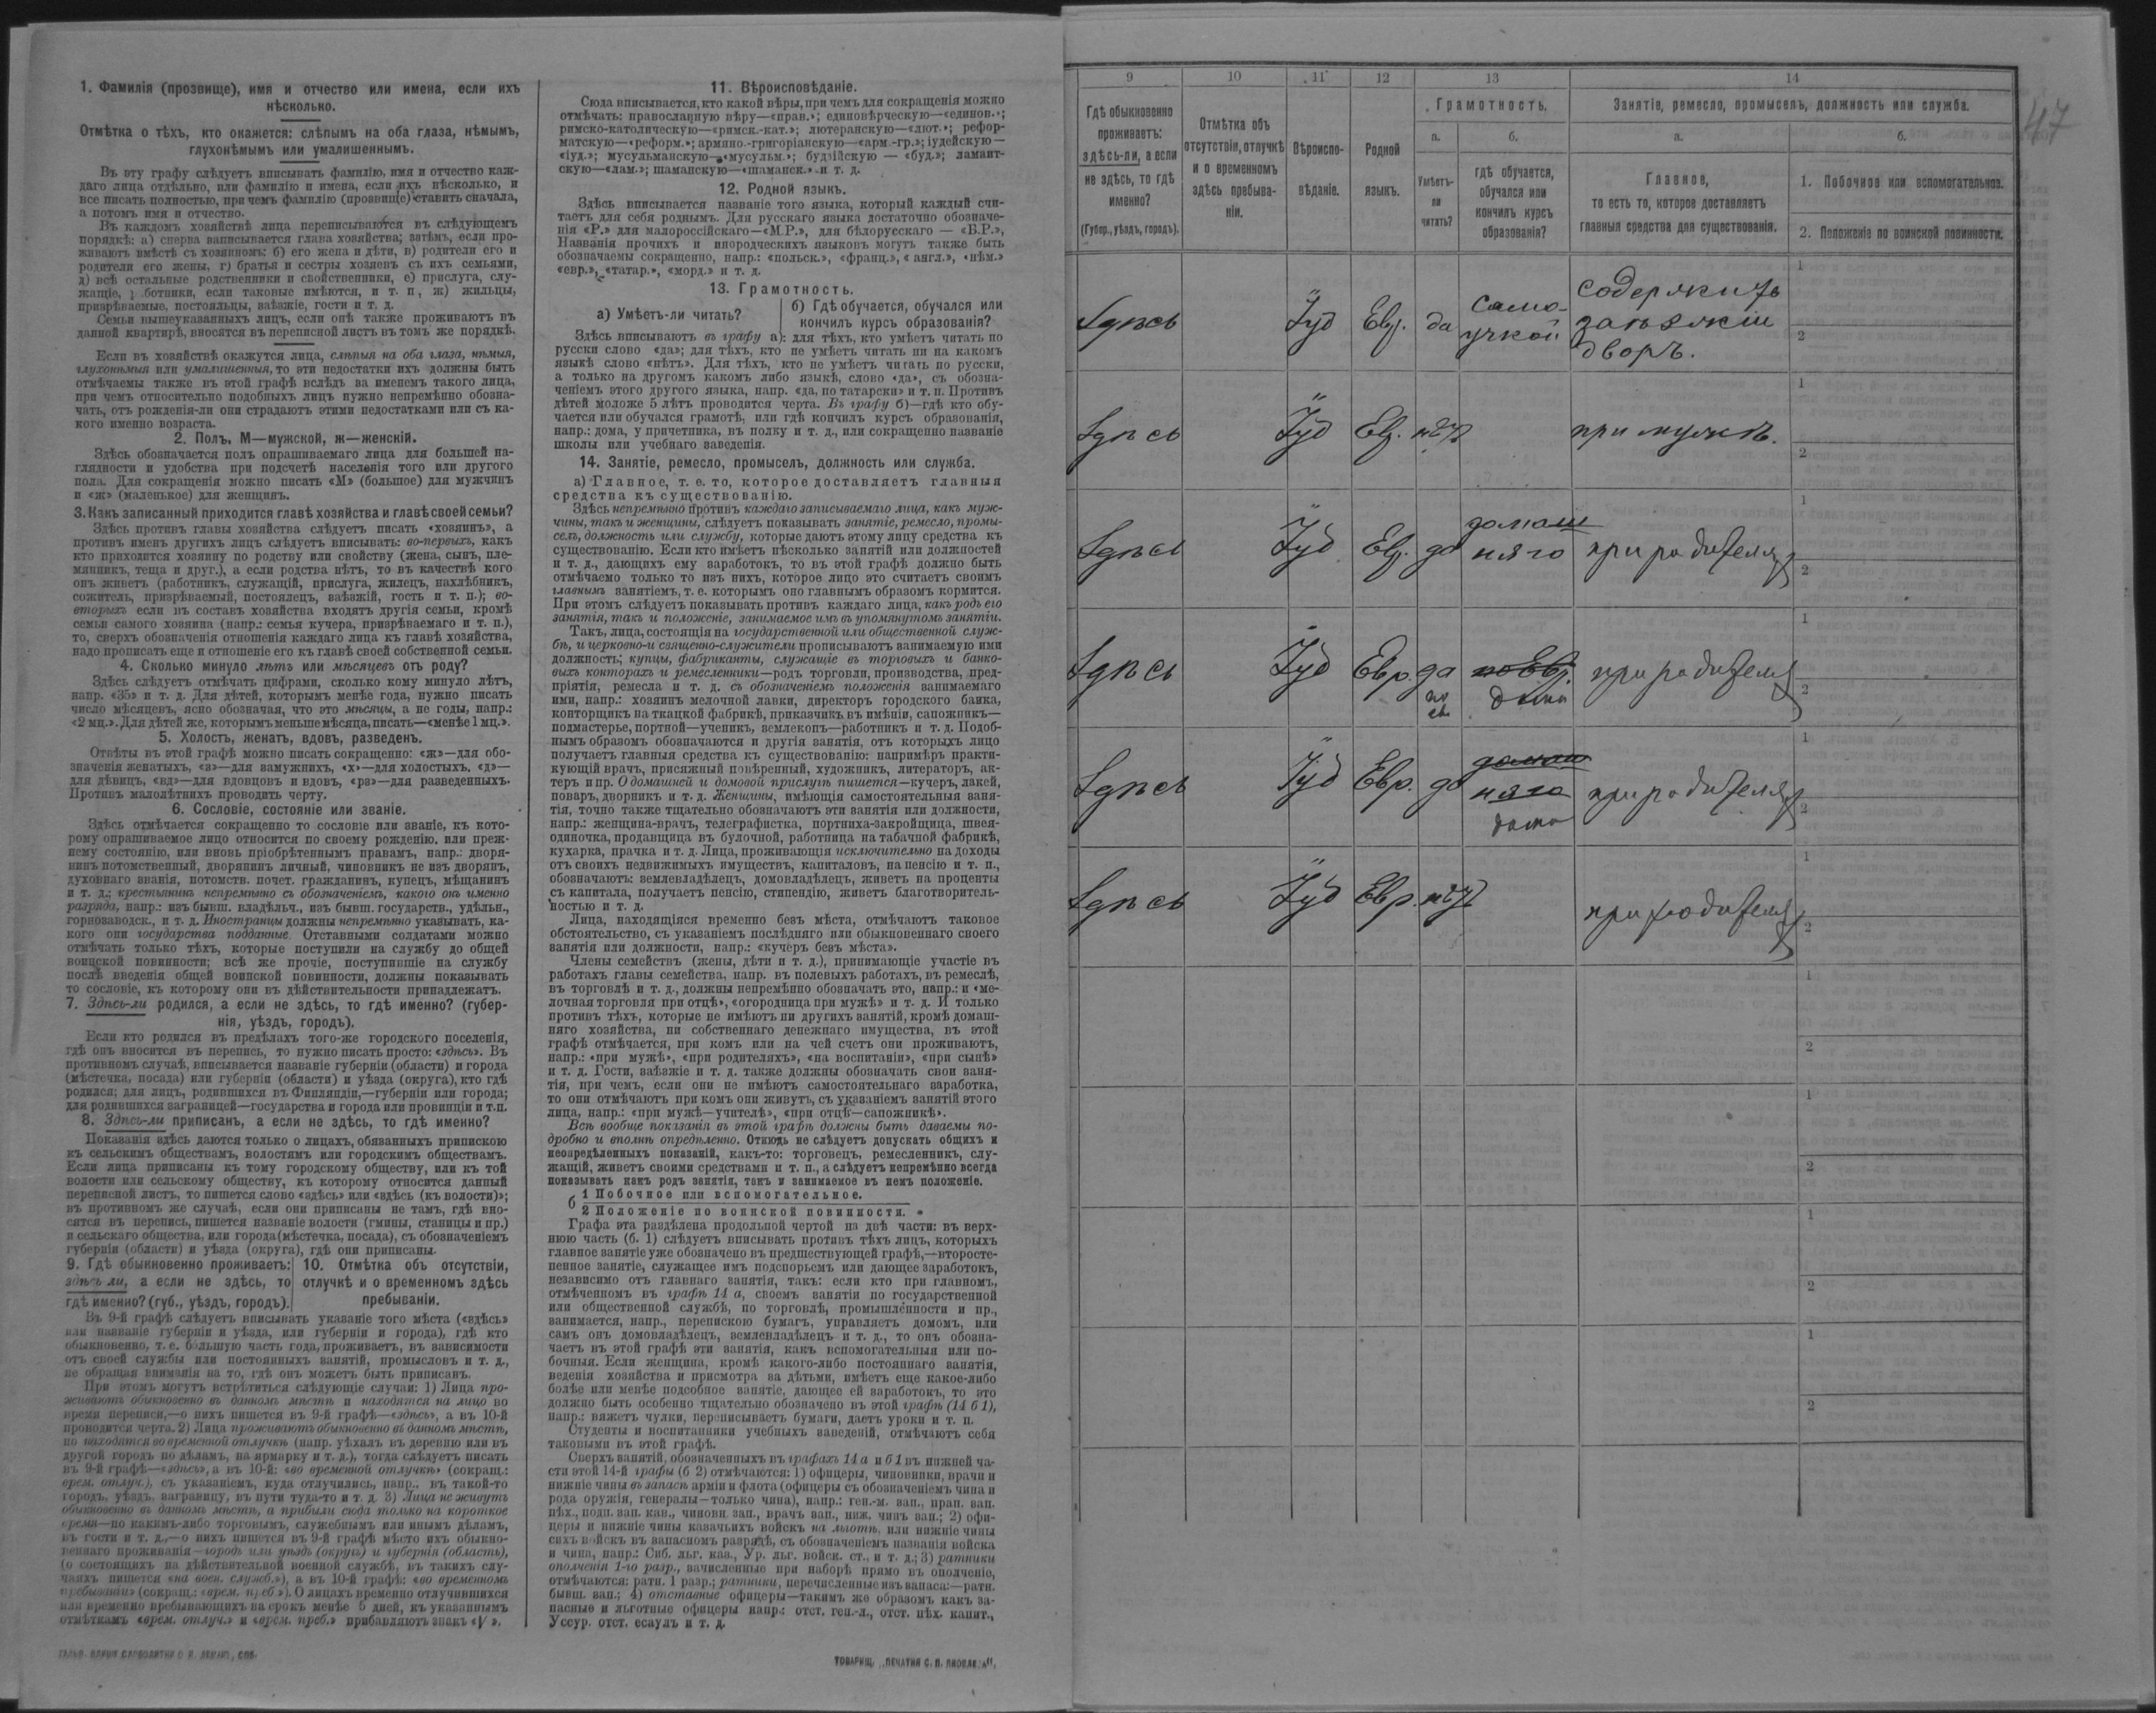 1. Фамилія (прозвище), имя и отчество или имена, если ихъ
нѣсколько.
Отмѣтка о тѣхъ, кто окажется: слѣпымъ на оба глаза, нѣмымъ,
глухонѣмымъ или умалишеннымъ.
Въ эту графу слѣдуетъ вписывать фамилію, имя и отчество каж-
даго лица отдѣльно, или фамилію и имена, если ихъ нѣсколько, и
все писать полностью, при чемъ фамилію (прозвище) ставить сначала,
а потомъ имя и отчество.
Въ каждомъ хозяйствѣ лица переписываются въ слѣдующемъ
порядкѣ: а) сперва записывается глава хозяйства; затѣмъ, если про-
живаютъ вмѣстѣ съ хозяиномъ: б) его жена и дѣти, в) родители его и
родители его жены, г) братья и сестры хозяевъ съ ихъ семьями,
д) всѣ остальные родственники и свойственники, е) прислуга, слу-
жащіе, ботники, если таковые имѣются, и т. п., ж) жильцы,
призрѣваемые, постояльцы, заѣзжіе, гости и т. д.
Семьи вышеуказанныхъ лицъ, если онѣ также проживаютъ въ
данной квартирѣ, вносятся въ переписной листъ въ томъ же порядкѣ.
Если въ хозяйствѣ окажутся лица, слѣпыя на оба глаза, нѣмыя,
глухонѣмыя или умалишенныя, то эти недостатки ихъ должны быть
отмѣчаемы также въ этой графѣ вслѣдъ за именемъ такого лица,
при чемъ относительно подобныхъ лицъ нужно непремѣнно обозна-
чать, отъ рожденія-ли они страдаютъ этими недостатками или съ ка-
кого именно возраста.
2. Полъ. М—мужской, ж—женскій.
Здѣсь обозначается полъ опрашиваемаго лица для большей на-
глядности и удобства при подсчетѣ населенія того или другого
пола. Для сокращенія можно писать «М» (большое) для мужчинъ
и «ж» (маленькое) для женщинъ.
3. Какъ записанный приходится главѣ хозяйства и главѣ своей семьи?
Здѣсь противъ главы хозяйства слѣдуетъ писать «хозяинъ», а
противъ именъ другихъ лицъ слѣдуетъ вписывать: во-первыхъ, какъ
кто приходится хозяину по родству или свойству (жена, сынъ, пле-
мянникъ, теща и друг.), а если родства нѣтъ, то въ качествѣ кого
онъ живетъ (работникъ, служащій, прислуга, жилецъ, нахлѣбникъ,
сожитель, призрѣваемый, постоялецъ, заѣзжій, гость и т. п.); во-
вторыхъ если въ составъ хозяйства входятъ другія семьи, кромѣ
семьи самого хозяина (напр.: семья кучера, призрѣваемаго и т. п.),
то, сверхъ обозначенія отношенія каждаго лица къ главѣ хозяйства,
надо прописать еще и отношеніе его къ главѣ своей собственной семьи.
4. Сколько минуло лѣтъ или мѣсяцевъ отъ роду?
Здѣсь слѣдуетъ отмѣчать цифрами, сколько кому минуло лѣтъ,
напр. «35» и т. д. Для дѣтей, которымъ менѣе года, нужно писать
число мѣсяцевъ, ясно обозначая, что это мѣсяцы, а не годы, напр.:
«2 мц.». Для дѣтей же, которымъ меньше мѣсяца, писать—«менѣе 1 мц.».
5. Холостъ, женатъ, вдовъ, разведенъ.
Отвѣты въ этой графѣ можно писать сокращенно: «ж»—для обо-
значенія женатыхъ, «з»—для замужнихъ, «х»—для холостыхъ. «д»—
для дѣвицъ, «вд»—для вдовцовъ и вдовъ, «рз»—для разведенныхъ.
Противъ малолѣтнихъ проводить черту.
6. Сословіе, состояніе или званіе.
Здѣсь отмѣчается сокращенно то сословіе или званіе, къ кото-
рому опрашиваемое лицо относится по своему рожденію, или преж-
нему состоянію, или вновь пріобрѣтеннымъ правамъ, напр.: дворя-
нинъ потомственный, дворянинъ личный, чиновникъ не изъ дворянъ,
духовнаго званія, потомств. почет. гражданинъ, купецъ, мѣщанинъ
и т. д.; крестьянинъ непремѣнно съ обозначеніемъ, какого онъ именно
разряда, напр.: изъ бывш. владѣльч., изъ бывш. государств., удѣльн.,
горнозаводск., и т. д. Иностранцы должны непремѣнно указывать, ка-
кого они государства подданные. Отставными солдатами можно
отмѣчать только тѣхъ, которые поступили на службу до общей
воинской повинности; всѣ же прочіе, поступившіе на службу
послѣ введенія общей воинской повинности, должны показывать
то сословіе, къ которому они въ дѣйствительности принадлежатъ.
7. Здѣсь-ли родился, а если не здѣсь, то гдѣ именно? (губер-
нія, уѣздъ, городъ).
Если кто родился въ предѣлахъ того-же городского поселенія,
гдѣ онъ вносится въ перепись, то нужно писать просто: «здѣсь». Въ
противномъ случаѣ, вписывается названіе губерніи (области) и города
(мѣстечка, посада) или губерніи (области) и уѣзда (округа), кто гдѣ
родился; для лицъ, родившихся въ Финляндіи,—губерніи или города;
для родившихся заграницей—государства и города или провинціи и т.п.
8. Здѣсь-ли приписанъ, а если не здѣсь, то гдѣ именно?
Показанія здѣсь даются только о лицахъ, обязанныхъ припискою
къ сельскимъ обществамъ, волостямъ или городскимъ обществамъ.
Если лица приписаны къ тому городскому обществу, или къ той
волости или сельскому обществу, къ которому относится данный
переписной листъ, то пишется слово «здѣсь» или «здѣсь (къ волости)»;
въ противномъ же случаѣ, если они приписаны не тамъ, гдѣ вно-
сятся въ перепись, пишется названіе волости (гмины, станицы и пр.)
и сельскаго общества, или города (мѣстечка, посада), съ обозначеніемъ
губерніи (области) и уѣзда (округа), гдѣ они приписаны.
9. Гдѣ обыкновенно проживаетъ:
здѣсь ли, а если не здѣсь, то
гдѣ именно? (губ., уѣздъ, городъ).
10. Отмѣтка объ отсутствіи,
отлучкѣ и о временномъ здѣсь
пребываніи.
Въ 9-й графѣ слѣдуетъ вписывать указаніе того мѣста («здѣсь»
или названіе губерніи и уѣзда, или губерніи и города), гдѣ кто
обыкновенно, т. е. большую часть года, проживаетъ, въ зависимости
отъ своей службы или постоянныхъ занятій, промысловъ и т. д.,
не обращая вниманія на то, гдѣ онъ можетъ быть приписанъ.
При этомъ могутъ встрѣтиться слѣдующіе случаи: 1) Лица про-
живаютъ обыкновенно въ данномъ мѣстѣ и находятся на лицо во
время переписи,—о нихъ пишется въ 9-й графѣ—«здѣсь», а въ 10-й
проводится черта. 2) Лица проживаютъ обыкновенно въ данномъ мѣстѣ,
но находятся во временной отлучкѣ (напр. уѣхалъ въ деревню или въ
другой городъ по дѣламъ, на ярмарку и т. д.), тогда слѣдуетъ писать
въ 9-й графѣ—«здѣсь», а въ 10-й: «во временной отлучкѣ» (сокращ.:
врем. отлуч.), съ указаніемъ, куда отлучились, напр.. въ такой-то
городъ, уѣздъ, заграницу, въ пути туда-то и т. д. 3) Лица не живутъ
обыкновенно въ данномъ мѣстѣ, а прибыли сюда только на короткое
время—по какимъ-либо торговымъ, служебнымъ или инымъ дѣламъ,
въ гости и т. д.,—о нихъ пишется въ 9-й графѣ мѣсто ихъ обыкно-
веннаго проживанія—городъ или уѣздъ (округъ) и губернія (область),
(о состоящихъ на дѣйствительной военной службѣ, въ такихъ слу-
чаяхъ пишется «на воен. служб.»), а въ 10-й графѣ: «во временномъ
пребываніи» (сокращ.: «врем. преб.»). О лицахъ временно отлучившихся
или временно пребывающихъ на срокъ менѣе 5 дней, къ указаннымъ
отмѣткамъ «врем. отлуч.» и «врем. преб.» прибавляютъ знакъ «V».
11. Вѣроисповѣданіе.
Сюда вписывается, кто какой вѣры, при чемъ для сокращенія можно
отмѣчать: православную вѣру—«прав.»; единовѣрческую—«единов.»;
римско-католическую—«римск.-кат.»; лютеранскую—«лют.»; рефор-
матскую—«реформ.»; армяно.-григоріанскую—«арм.-гр.»; іудейскую—
«іуд.»; мусульманскую—«мусульм.»; буддійскую — «буд.»; ламаит-
скую—«лам.»; шаманскую—«шаманск.» и т. д.
12. Родной языкъ.
Здѣсь вписывается названіе того языка, который каждый счи-
таетъ для себя роднымъ. Для русскаго языка достаточно обозначе-
нія «Р.» для малороссійскаго—«М.Р.», для бѣлорусскаго — «Б.Р.»,
Названія прочихъ и инородческихъ языковъ могутъ также быть
обозначаемы сокращенно, напр.: «польск.», «франц.», «англ.», «нѣм.»
«евр.», «татар.», «морд.» и т. д.
13. Грамотность.
а) Умѣетъ-ли читать?
б) Гдѣ обучается, обучался или
кончилъ курсъ образованія?
Здѣсь вписываютъ въ графу а): для тѣхъ, кто умѣетъ читать по
русски слово «да»; для тѣхъ, кто не умѣетъ читать ни на какомъ
языкѣ слово «нѣтъ». Для тѣхъ, кто не умѣетъ читать по русски,
а только на другомъ какомъ либо языкѣ, слово «да», съ обозна-
ченіемъ этого другого языка, напр. «да, по татарски» и т. п. Противъ
дѣтей моложе 5 лѣтъ проводится черта. Въ графу б)—гдѣ кто обу-
чается или обучался грамотѣ, или гдѣ кончилъ курсъ образованія,
напр.: дома, у причетника, въ полку и т. д., или сокращенно названіе
школы или учебнаго заведенія.
14. Занятіе, ремесло, промыселъ, должность или служба.
а) Главное, т. е. то, которое доставляетъ главныя
средства къ существованію.
Здѣсь непремѣнно противъ каждаго записываемаго лица, какъ муж-
чины, такъ и женщины, слѣдуетъ показывать занятіе, ремесло, промы-
селъ, должность или службу, которые даютъ этому лицу средства къ
существованію. Если кто имѣетъ нѣсколько занятій или должностей
и т. д., дающихъ ему заработокъ, то въ этой графѣ должно быть
отмѣчаемо только то изъ нихъ, которое лицо это считаетъ своимъ
главнымъ занятіемъ, т. е. которымъ оно главнымъ образомъ кормится.
При этомъ слѣдуетъ показывать противъ каждаго лица, какъ родъ его
занятія, такъ и положеніе, занимаемое имъ въ упомянутомъ занятіи.
Такъ, лица, состоящія на государственной или общественной служ-
бѣ, и церковно-и священно-служители прописываютъ занимаемую ими
должность; купцы, фабриканты, служащіе въ торговыхъ и банко-
выхъ конторахъ и ремесленники—родъ торговли, производства, пред-
пріятія, ремесла и т. д. съ обозначеніемъ положенія занимаемаго
ими, напр.: хозяинъ мелочной лавки, директоръ городского банка,
конторщикъ на ткацкой фабрикѣ, приказчикъ въ имѣніи, сапожникъ—
подмастерье, портной—ученикъ, землекопъ—работникъ и т. д. Подоб-
нымъ образомъ обозначаются и другія занятія, отъ которыхъ лицо
получаетъ главныя средства къ существованію: напримѣръ практи-
кующій врачъ, присяжный повѣренный, художникъ, литераторъ, ак-
теръ и пр. О домашней и домовой прислугѣ пишется—кучеръ, лакей,
поваръ, дворникъ и т. д. Женщины, имѣющія самостоятельныя заня-
тія, точно также тщательно обозначаютъ эти занятія или должности,
напр.: женщина-врачъ, телеграфистка, портниха-закройщица, швея-
одиночка, продавщица въ булочной, работница на табачной фабрикѣ,
кухарка, прачка и т. д. Лица, проживающія исключительно на доходы
отъ своихъ недвижимыхъ имуществъ, капиталовъ, на пенсію и т. п.,
обозначаютъ: землевладѣлецъ, домовладѣлецъ, живетъ на проценты
съ капитала, получаетъ пенсію, стипендію, живетъ благотворитель-
ностью и т. д.
Лица, находящіяся временно безъ мѣста, отмѣчаютъ таковое
обстоятельство, съ указаніемъ послѣдняго или обыкновеннаго своего
занятія или должности, напр.: «кучеръ безъ мѣста».
Члены семействъ (жены, дѣти и т. д.), принимающіе участіе въ
работахъ главы семейства, напр. въ полевыхъ работахъ, въ ремеслѣ,
въ торговлѣ и т. д., должны непремѣнно обозначать это, напр.: и «ме-
лочная торговля при отцѣ», «огородница при мужѣ» и т. д. И только
противъ тѣхъ, которые не имѣютъ ни другихъ занятій, кромѣ домаш-
няго хозяйства, ни собственнаго денежнаго имущества, въ этой
графѣ отмѣчается, при комъ или на чей счетъ они проживаютъ,
напр.: «при мужѣ», «при родителяхъ», «на воспитаніи», «при сынѣ»
и т. д. Гости, заѣзжіе и т. д. также должны обозначать свои заня-
тія, при чемъ, если они не имѣютъ самостоятельнаго заработка,
то они отмѣчаютъ при комъ они живутъ, съ указаніемъ занятій этого
лица, напр.: «при мужѣ—учителѣ», «при отцѣ—сапожникѣ».
Всѣ вообще показанія въ этой графѣ должны быть даваемы по-
дробно и вполнѣ опредѣленно. Отнюдь не слѣдуетъ допускать общихъ и
неопредѣленныхъ показаній, какъ-то: торговецъ, ремесленникъ, слу-
жащій, живетъ своими средствами и т. п., а слѣдуетъ непремѣнно всегда
показывать какъ родъ занятія, такъ и занимаемое въ немъ положеніе.
б 1 Побочное или вспомогательное.
2 Положеніе по воинской повинности.
Графа эта раздѣлена продольной чертой на двѣ части: въ верх-
нюю часть (б. 1) слѣдуетъ вписывать противъ тѣхъ лицъ, которыхъ
главное занятіе уже обозначено въ предшествующей графѣ,—второсте-
пенное занятіе, служащее имъ подспорьемъ или дающее заработокъ,
независимо отъ главнаго занятія, такъ: если кто при главномъ,
отмѣченномъ въ графѣ 14 а, своемъ занятіи по государственной
или общественной службѣ, по торговлѣ, промышленности и пр.,
занимается, напр., перепискою бумагъ, управляетъ домомъ, или
самъ онъ домовладѣлецъ, землевладѣлецъ и т. д., то онъ обозна-
чаетъ въ этой графѣ эти занятія, какъ вспомогательныя или по-
бочныя. Если женщина, кромѣ какого-либо постояннаго занятія,
веденія хозяйства и присмотра за дѣтьми, имѣетъ еще какое-либо
болѣе или менѣе подсобное занятіе, дающее ей заработокъ, то это
должно быть особенно тщательно обозначено въ этой графѣ (14 б 1),
напр.: вяжетъ чулки, переписываетъ бумаги, даетъ уроки и т. п.
Студенты и воспитанники учебныхъ заведеній, отмѣчаютъ себя
таковыми въ этой графѣ.
Сверхъ занятій, обозначенныхъ въ графахъ 14 а и б 1 въ нижней ча-
сти этой 14-й графы (б 2) отмѣчаются: 1) офицеры, чиновники, врачи и
нижніе чины въ запасѣ арміи и флота (офицеры съ обозначеніемъ чина и
рода оружія, генералы—только чина), напр.: ген.-м. зап., прап. зап.
пѣх., подп. зап. кав., чиновн. зап., врачъ зап., ниж. чинъ зап.; 2) офи-
церы и нижніе чины казачьихъ войскъ на льготѣ, или нижніе чины
сихъ войскъ въ запасномъ разрядѣ, съ обозначеніемъ названія войска
и чина, напр.: Сиб. льг. каз., Ур. льг. войск. ст., и т. д.; 3) ратники
ополченія 1-го разр., зачисленные при наборѣ прямо въ ополченіе,
отмѣчаются: ратн. 1 разр.; ратники, перечисленные изъ запаса:—ратн.
бывш. зап.; 4) отставные офицеры—такимъ же образомъ какъ за-
пасные и льготные офицеры напр.: отст. ген.-л., отст. пѣх. капит.,
Уссур. отст. есаулъ и т. д.
ТОВАРИЩ. „ПЕЧАТНЯ С. П. ЯКОВЛЕВА",
47
9 10 11 12 13 14
Гдѣ обыкновенно
проживаетъ:
здѣсь-ли, а если
не здѣсь, то гдѣ
именно?
(Губер., уѣздъ, городъ).
Отмѣтка объ
отсутствіи, отлучкѣ
и о временномъ
здѣсь пребыва-
ніи.
Вѣроиспо-
вѣданіе.
Родной
языкъ.
Грамотность.
а.
Умѣетъ-
ли
читать?
б.
гдѣ обучается,
обучался или
кончилъ курсъ
образованія?
Занятіе, ремесло, промыселъ, должность или служба.
а.
Главное,
то есть то, которое доставляетъ
главныя средства для существованія.
б.
1. Побочное или вспомогательное.
2. Положеніе по воинской повинности.
Здѣсь Іуд Евр. да само-
учкой
содержитъ
заѣзжій
дворъ.
1
2
Здѣсь Іуд Евр. нѣтъ при мужѣ.
1
2
Здѣсь Іуд Евр. да домаш
няго при родителях
1
2
Здѣсь Іуд Евр. да по Евр. при родителях
дома
1
2
Здѣсь Іуд Евр. да домаш
няго при родителях
дома
1
2
Здѣсь Іуд Евр. нѣтъ при родителях
1
2
1
2
1
2
1
2
1
2